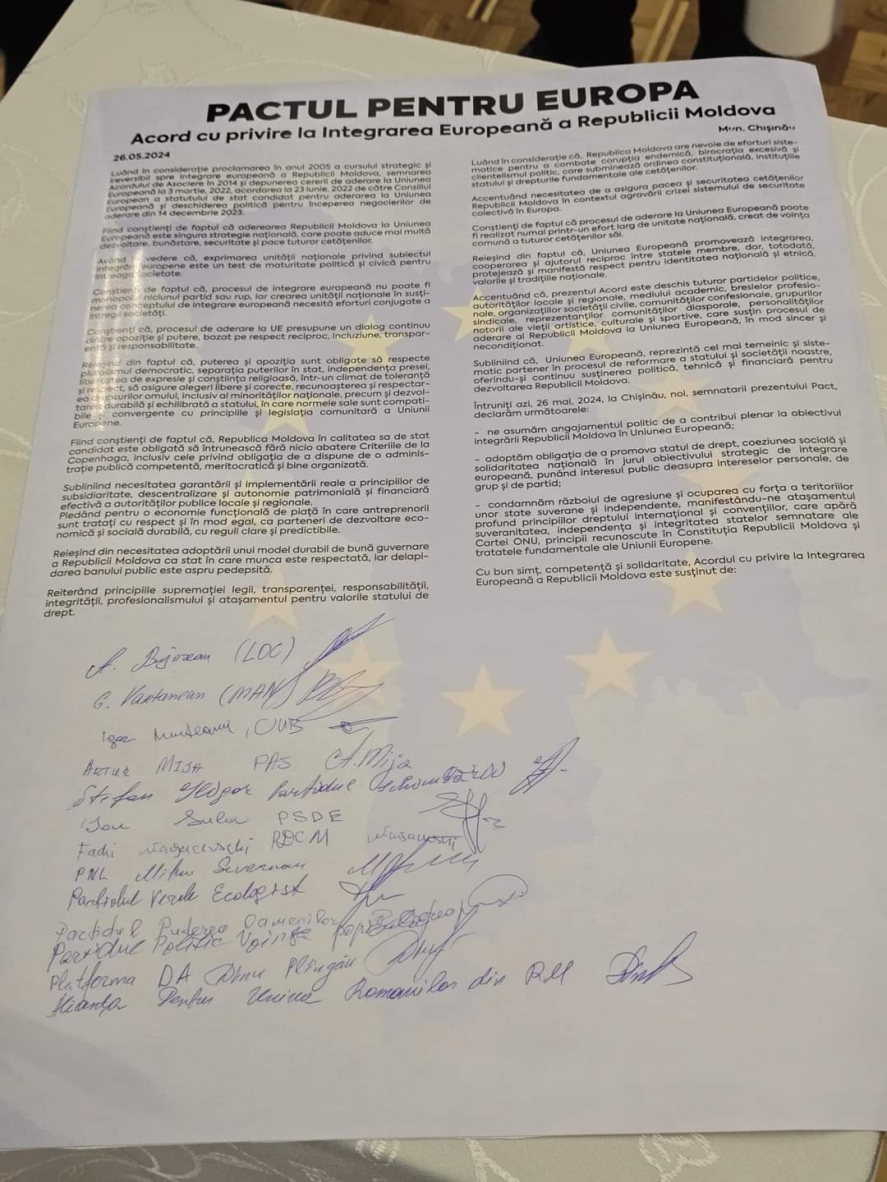 PACTUL PENTRU EUROPA
Acord cu privire la Integrarea Europeană a Republicii Moldova
26.05.2024
Mun. Chișinău
Luând în considerație proclamarea în anul 2005 a cursului strategic și
ireversibil spre integrare europeană a Republicii Moldova, semnarea
Acordului de Asociere în 2014 și depunerea cererii de aderare la Uniunea
Europeană la 3 martie, 2022, acordarea la 23 iunie, 2022 de către Consiliul
European a statutului de stat candidat pentru aderarea la Uniunea
Europeană și deschiderea politică pentru începerea negocierilor de
aderare din 14 decembrie 2023.
Fiind conștienți de faptul că aderearea Republicii Moldova la Uniunea
Europeană este singura strategie națională, care poate aduce mai multă
dezvoltare, bunăstare, securitate și pace tuturor cetățenilor.
Având vedere că, exprimarea unității naționale privind subiectul
integrării europene este un test de maturitate politică și civică pentru
întreaga societate.
Conștienți de faptul că, procesul de integrare europeană nu poate fi
monopolul niciunui partid sau rup, iar crearea unității naționale în susți-
nerea conceptului de integrare europeană necesită eforturi conjugate a
întregii societăți.
Conștienți că, procesul de aderare la UE presupune un dialog continuu
dintre opoziție și putere, bazat pe respect reciproc, incluziune, transpar-
ență și responsabilitate.
Reieșind din faptul că, puterea și opoziția sunt obligate să respecte
pluralismul democratic, separația puterilor în stat, independența presei,
libertatea de expresie și conștiința religioasă, într-un climat de toleranță
și respect, să asigure alegeri libere și corecte, recunoașterea și respectar-
ea drepturilor omului, inclusiv al minorităților naționale, precum și dezvol-
tarea durabilă și echilibrată a statului, în care normele sale sunt compati-
bile și convergente cu principiile și legislația comunitară a Uniunii
Europene.
Fiind conștienți de faptul că, Republica Moldova în calitatea sa de stat
candidat este obligată să întrunească fără nicio abatere Criteriile de la
Copenhaga, inclusiv cele privind obligația de a dispune de o adminis-
trație publică competentă, meritocratică și bine organizată.
Subliniind necesitatea garantării și implementării reale a principiilor de
subsidiaritate, descentralizare și autonomie patrimonială și financiară
efectivă a autorităților publice locale și regionale.
Pledând pentru o economie funcțională de piață în care antreprenorii
sunt tratați cu respect și în mod egal, ca parteneri de dezvoltare eco-
nomică și socială durabilă, cu reguli clare și predictibile.
Reieșind din necesitatea adoptării unui model durabil de bună guvernare
a Republicii Moldova ca stat în care munca este respectată, iar delapi-
darea banului public este aspru pedepsită.
Reiterând principiile supremației legii, transparenței, responsabilității,
integrității, profesionalismului și atașamentul pentru valorile statului de
drept.
Luând în considerație că, Republica Moldova are nevoie de eforturi siste-
matice pentru a combate corupția endemică, birocrația excesivă și
clientelismul politic, care subminează ordinea constituțională, instituțiile
statului și drepturile fundamentale ale cetățenilor.
Accentuând necesitatea de a asigura pacea și securitatea cetățenilor
Republicii Moldova în contextul agravării crizei sistemului de securitate
colectivă în Europa.
Conștienți de faptul că procesul de aderare la Uniunea Europeană poate
fi realizat numai printr-un efort larg de unitate națională, creat de voința
comună a tuturor cetățenilor săi.
Reieșind din faptul că, Uniunea Europeană promovează integrarea,
cooperarea și ajutorul reciproc între statele membre, dar, totodată,
protejează și manifestă respect pentru identitatea națională și etnică,
valorile și tradițiile naționale.
Accentuând că, prezentul Acord este deschis tuturor partidelor politice,
autorităților locale și regionale, mediului academic, breslelor profesio-
nale, organizațiilor societății civile, comunităților confesionale, grupurilor
sindicale, reprezentanților comunităților diasporale, personalităților
notorii ale vieții artistice, culturale și sportive, care susțin procesul de
aderare al Republicii Moldova la Uniunea Europeană, în mod sincer și
necondiționat.
Subliniind că, Uniunea Europeană, reprezintă cel mai temeinic și siste-
matic partener în procesul de reformare a statului și societății noastre,
oferindu-și continuu susținerea politică, tehnică și financiară pentru
dezvoltarea Republicii Moldova.
Întruniți azi, 26 mai, 2024, la Chișinău, noi, semnatarii prezentului Pact,
declarăm următoarele:
- ne asumăm angajamentul politic de a contribui plenar la obiectivul
integrării Republicii Moldova în Uniunea Europeană;
- adoptăm obligația de a promova statul de drept, coeziunea socială și
solidaritatea națională în jurul obiectivului strategic de integrare
europeană, punând interesul public deasupra intereselor personale, de
grup și de partid;
- condamnăm războiul de agresiune și ocuparea cu forța a teritoriilor
unor state suverane și independente, manifestându-ne atașamentul
profund principiilor dreptului internațional și convențiilor, care apără
suveranitatea, independența și integritatea statelor semnatare ale
Cartei ONU, principii recunoscute în Constituția Republicii Moldova și
tratatele fundamentale ale Uniunii Europene.
Cu bun simț, competență și solidaritate, Acordul cu privire la Integrarea
Europeană a Republicii Moldova este susținut de:
A. Bujorean (LOC)
G. Vartanean (MAN)
Igor Munteanu, CUB
Artur MIJA PAS A. Mija
Stefan Gligor Partidul Schimbării
Ion Sula PSDE
Fadei Nagacevschi RDCM
PNL Mihai Severovan
Partidul Verde Ecologist
Partidul Puterea Oamenilor
Partidul Politic Voința Poporului
Platforma DA Dinu Plîngău
Alianța Pentru Unirea Romanilor din RM